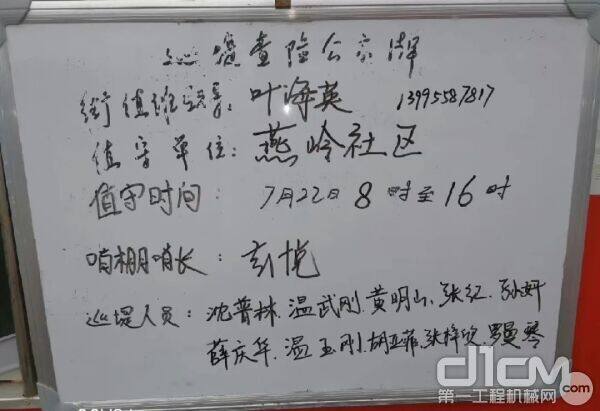 巡堤查险公示牌
街值班领导：叶海英 13995587817
值守单位：燕岭社区
值守时间：7月22日8时至16时
哨棚哨长：彭悦
巡堤人员：沈普林、温武刚、黄明山、张红、孙妍
薛庆华、温玉刚、胡亚菲、张梓欣、罗曼琴
d1cm.com
第一工程机械网